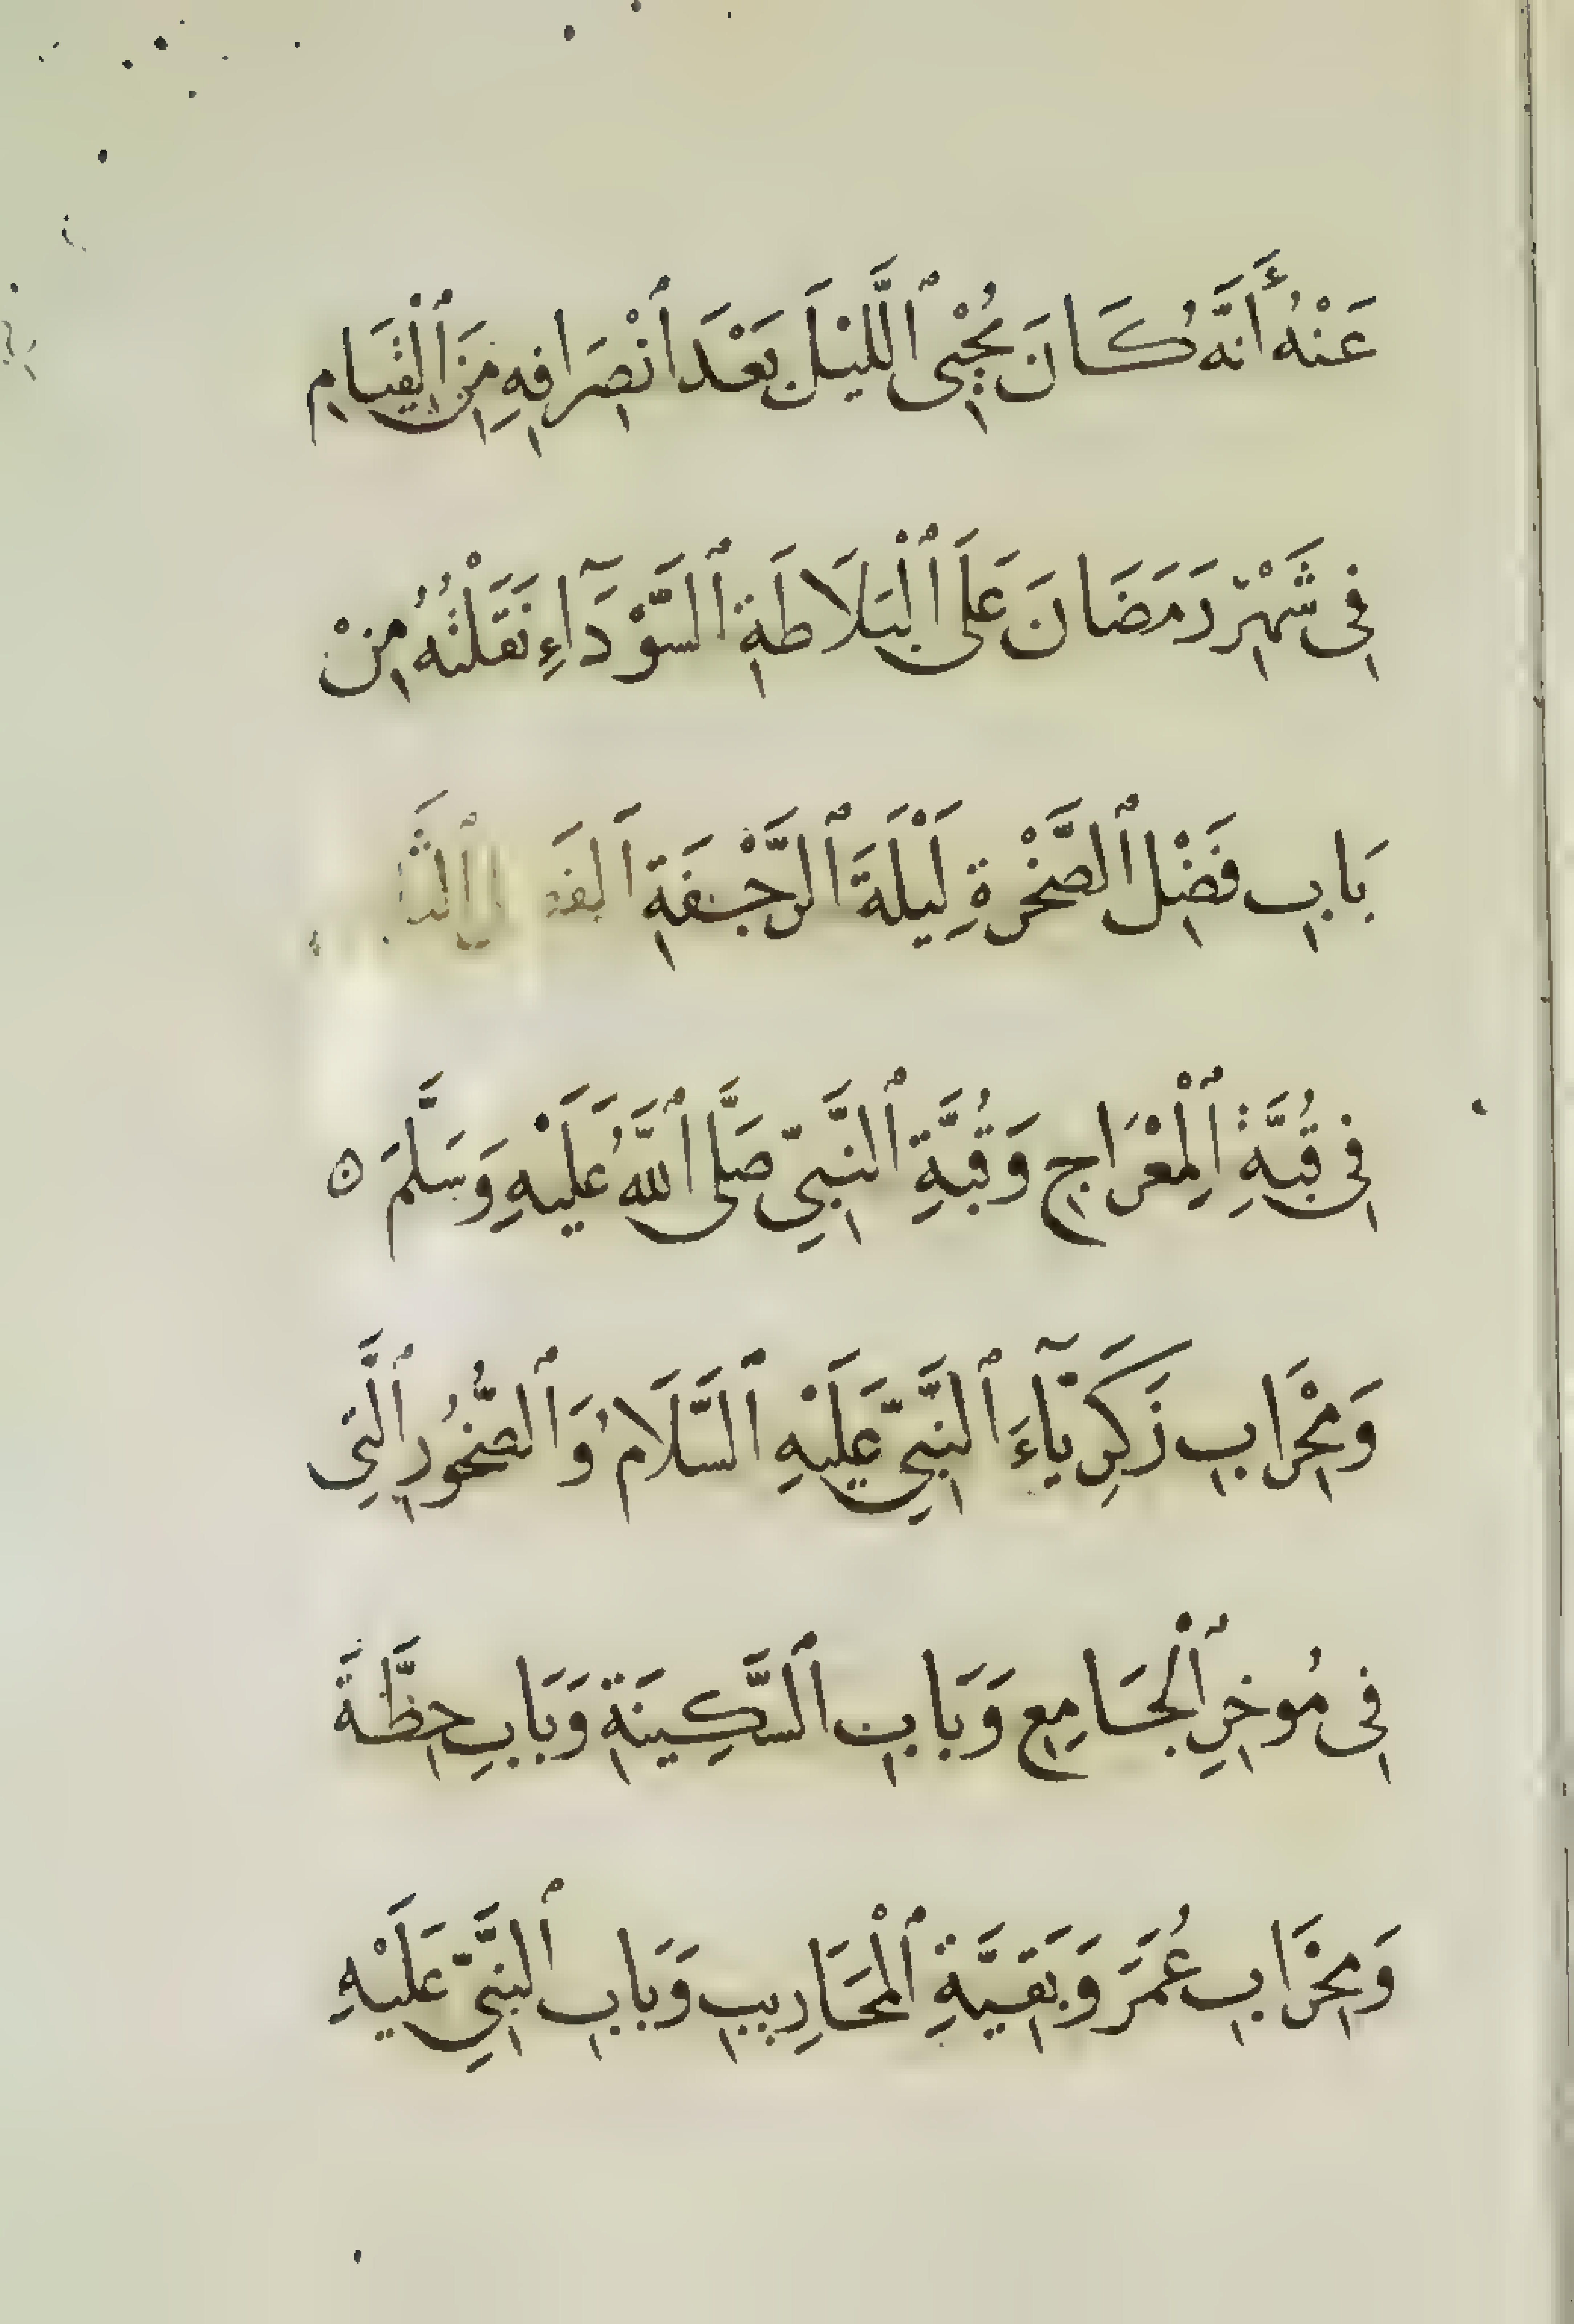 عَنْهُ أَنَّهُ كَانَ يُحْيِى ٱللَّيْلَ بَعْدَ ٱنْصِرَافِهِ مِنَ ٱلْقِيَامِ
فِى شَهْرِ رَمَضَانَ عَلَى ٱلْبَلَاطَةِ ٱلسَّوْدَآءِ نَقَلْتُهُ مِنْ
بَابِ فَضْلِ ٱلصَّخْرَةِ لَيْلَةَ ٱلرَّجْفَةِ
فِى قُبَّةِ ٱلْمِعْرَاجِ وَقُبَّةِ ٱلنَّبِيِّ صَلَّى ٱللَّهُ عَلَيْهِ وَسَلَّمَ ٥
وَمِحْرَابِ زَكَرِيَّآءَ ٱلنَّبِيِّ عَلَيْهِ ٱلسَّلَامُ وَٱلصُّخُورِ ٱلَّتِى
فِى مُوخِرِ ٱلْجَامِعِ وَبَابِ ٱلسَّكِينَةِ وَبَابِ حِطَّةَ
وَمِحْرَابِ عُمَرَ وَبَقِيَّةِ ٱلْمَحَارِيبِ وَبَابِ ٱلنَّبِيِّ عَلَيْهِ